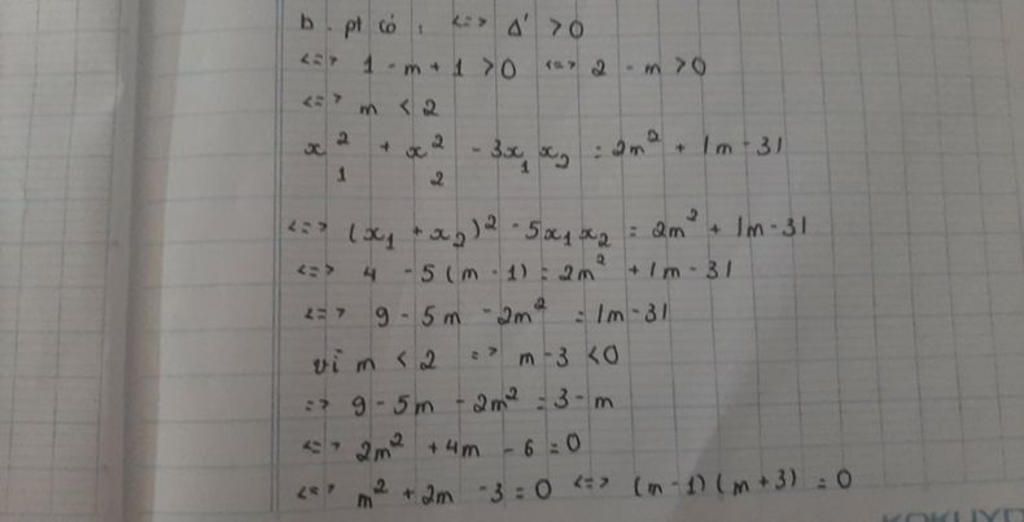 b. pt có : <=> Δ' > 0
<=> 1 - m + 1 > 0 <=> 2 - m > 0
<=> m < 2
x₁² + x₂² - 3x₁x₂ = 2m² + |m - 3|
<=> (x₁ + x₂)² - 5x₁x₂ = 2m² + |m - 3|
<=> 4 - 5(m - 1) = 2m² + |m - 3|
<=> 9 - 5m - 2m² = |m - 3|
vì m < 2 => m - 3 < 0
=> 9 - 5m - 2m² = 3 - m
<=> 2m² + 4m - 6 = 0
<=> m² + 2m - 3 = 0 <=> (m - 1)(m + 3) = 0